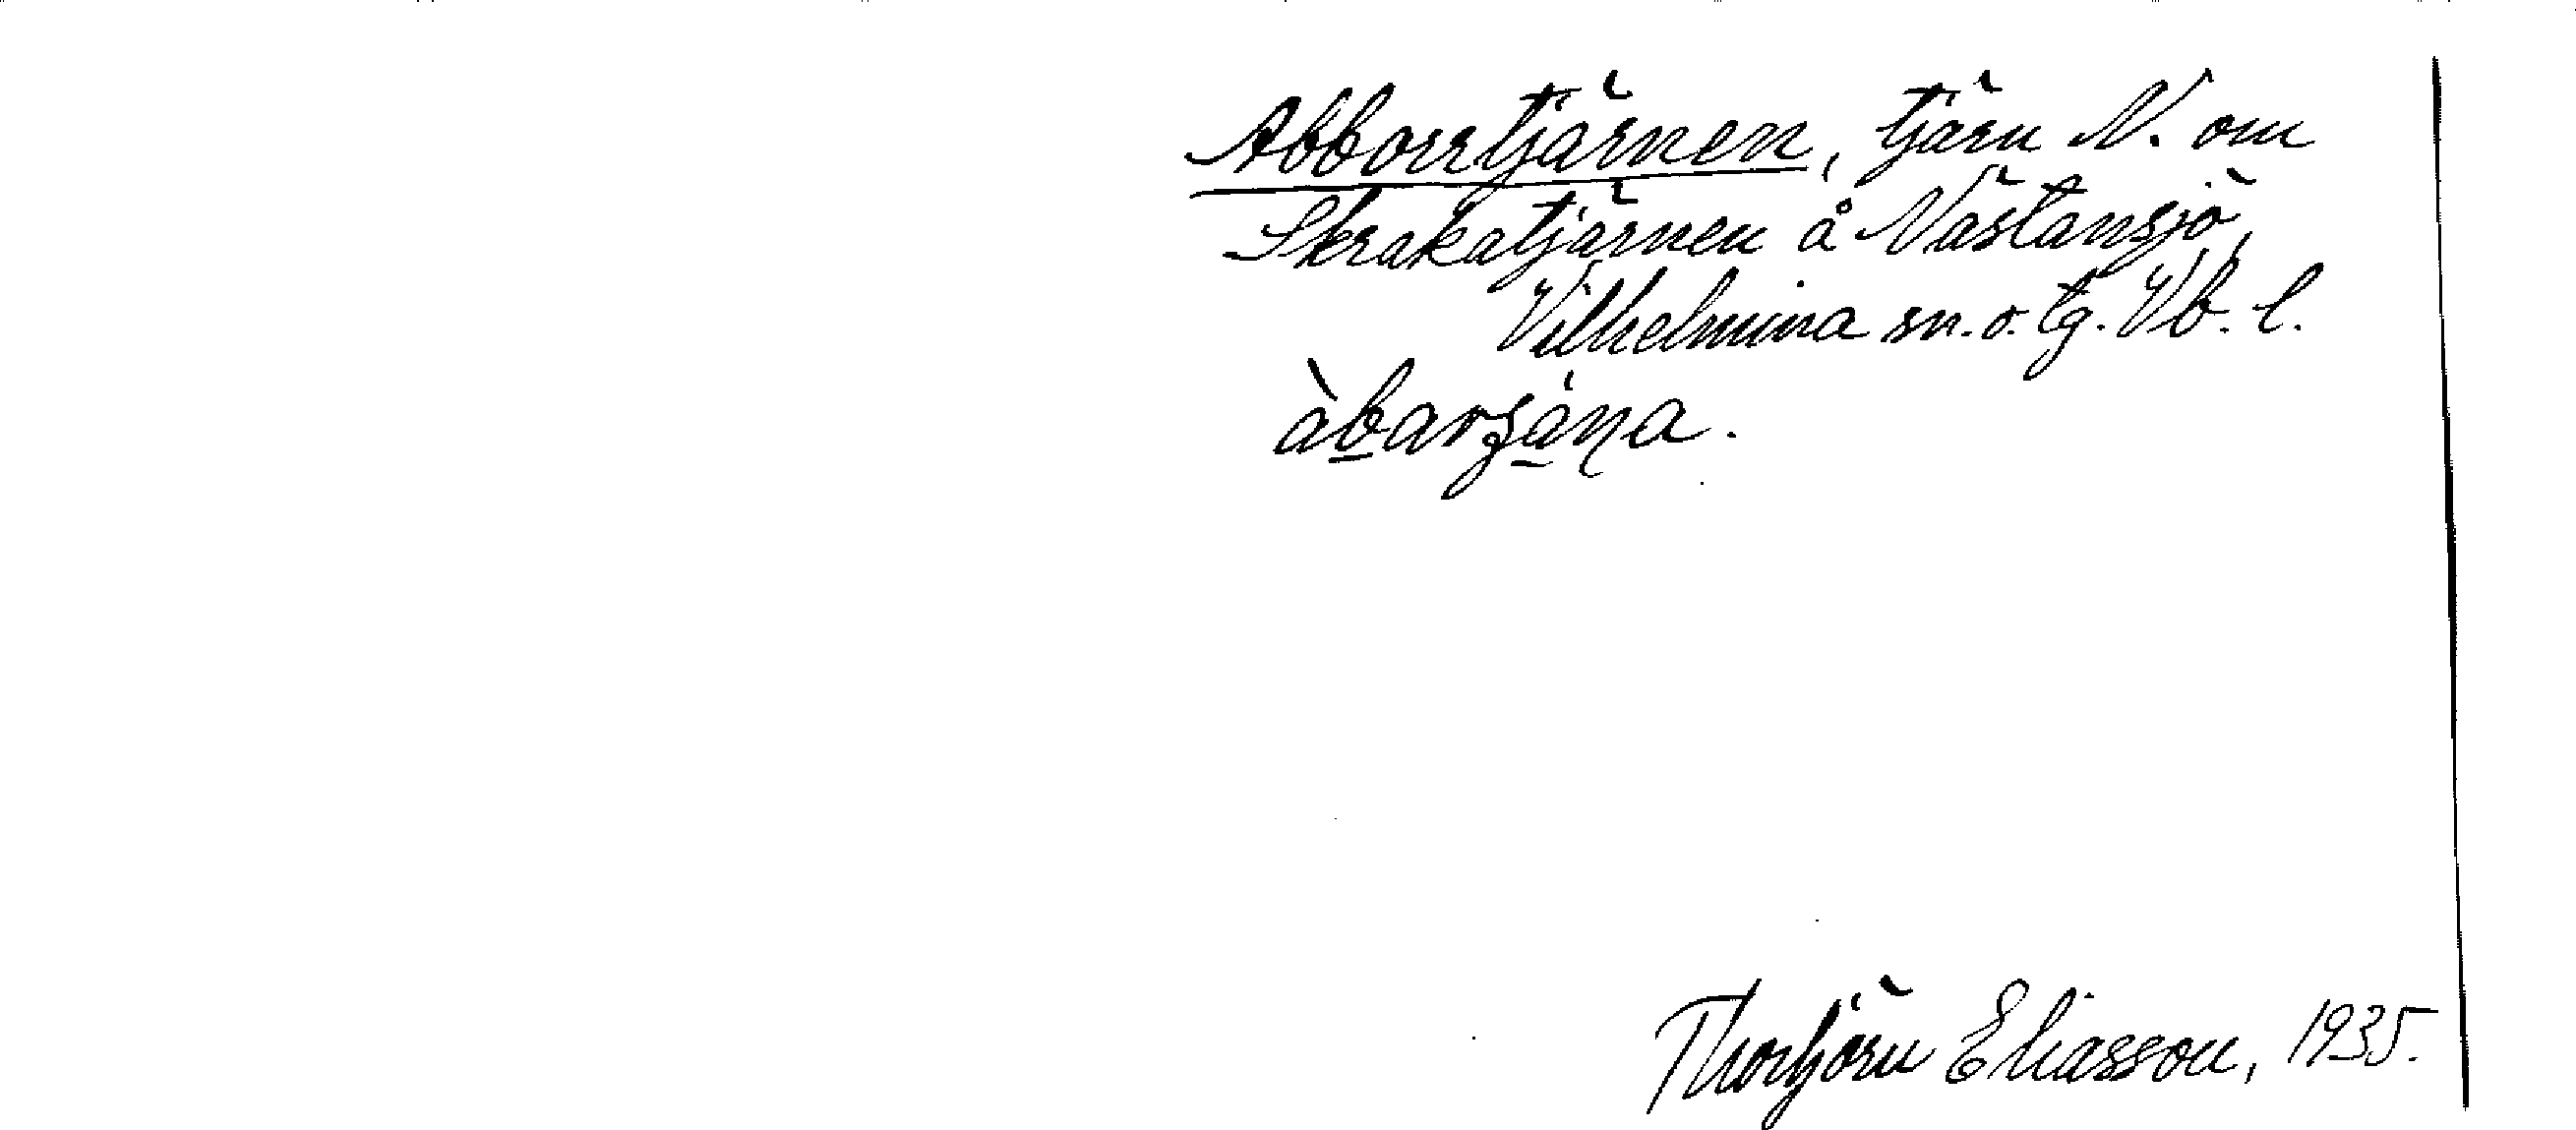 Abborrtjärnen, tjärn N. om
Skrakatjärnen å Västansjö,
Vilhelmina sn. o. tg. Vb. l.
Eliasson, 1935.